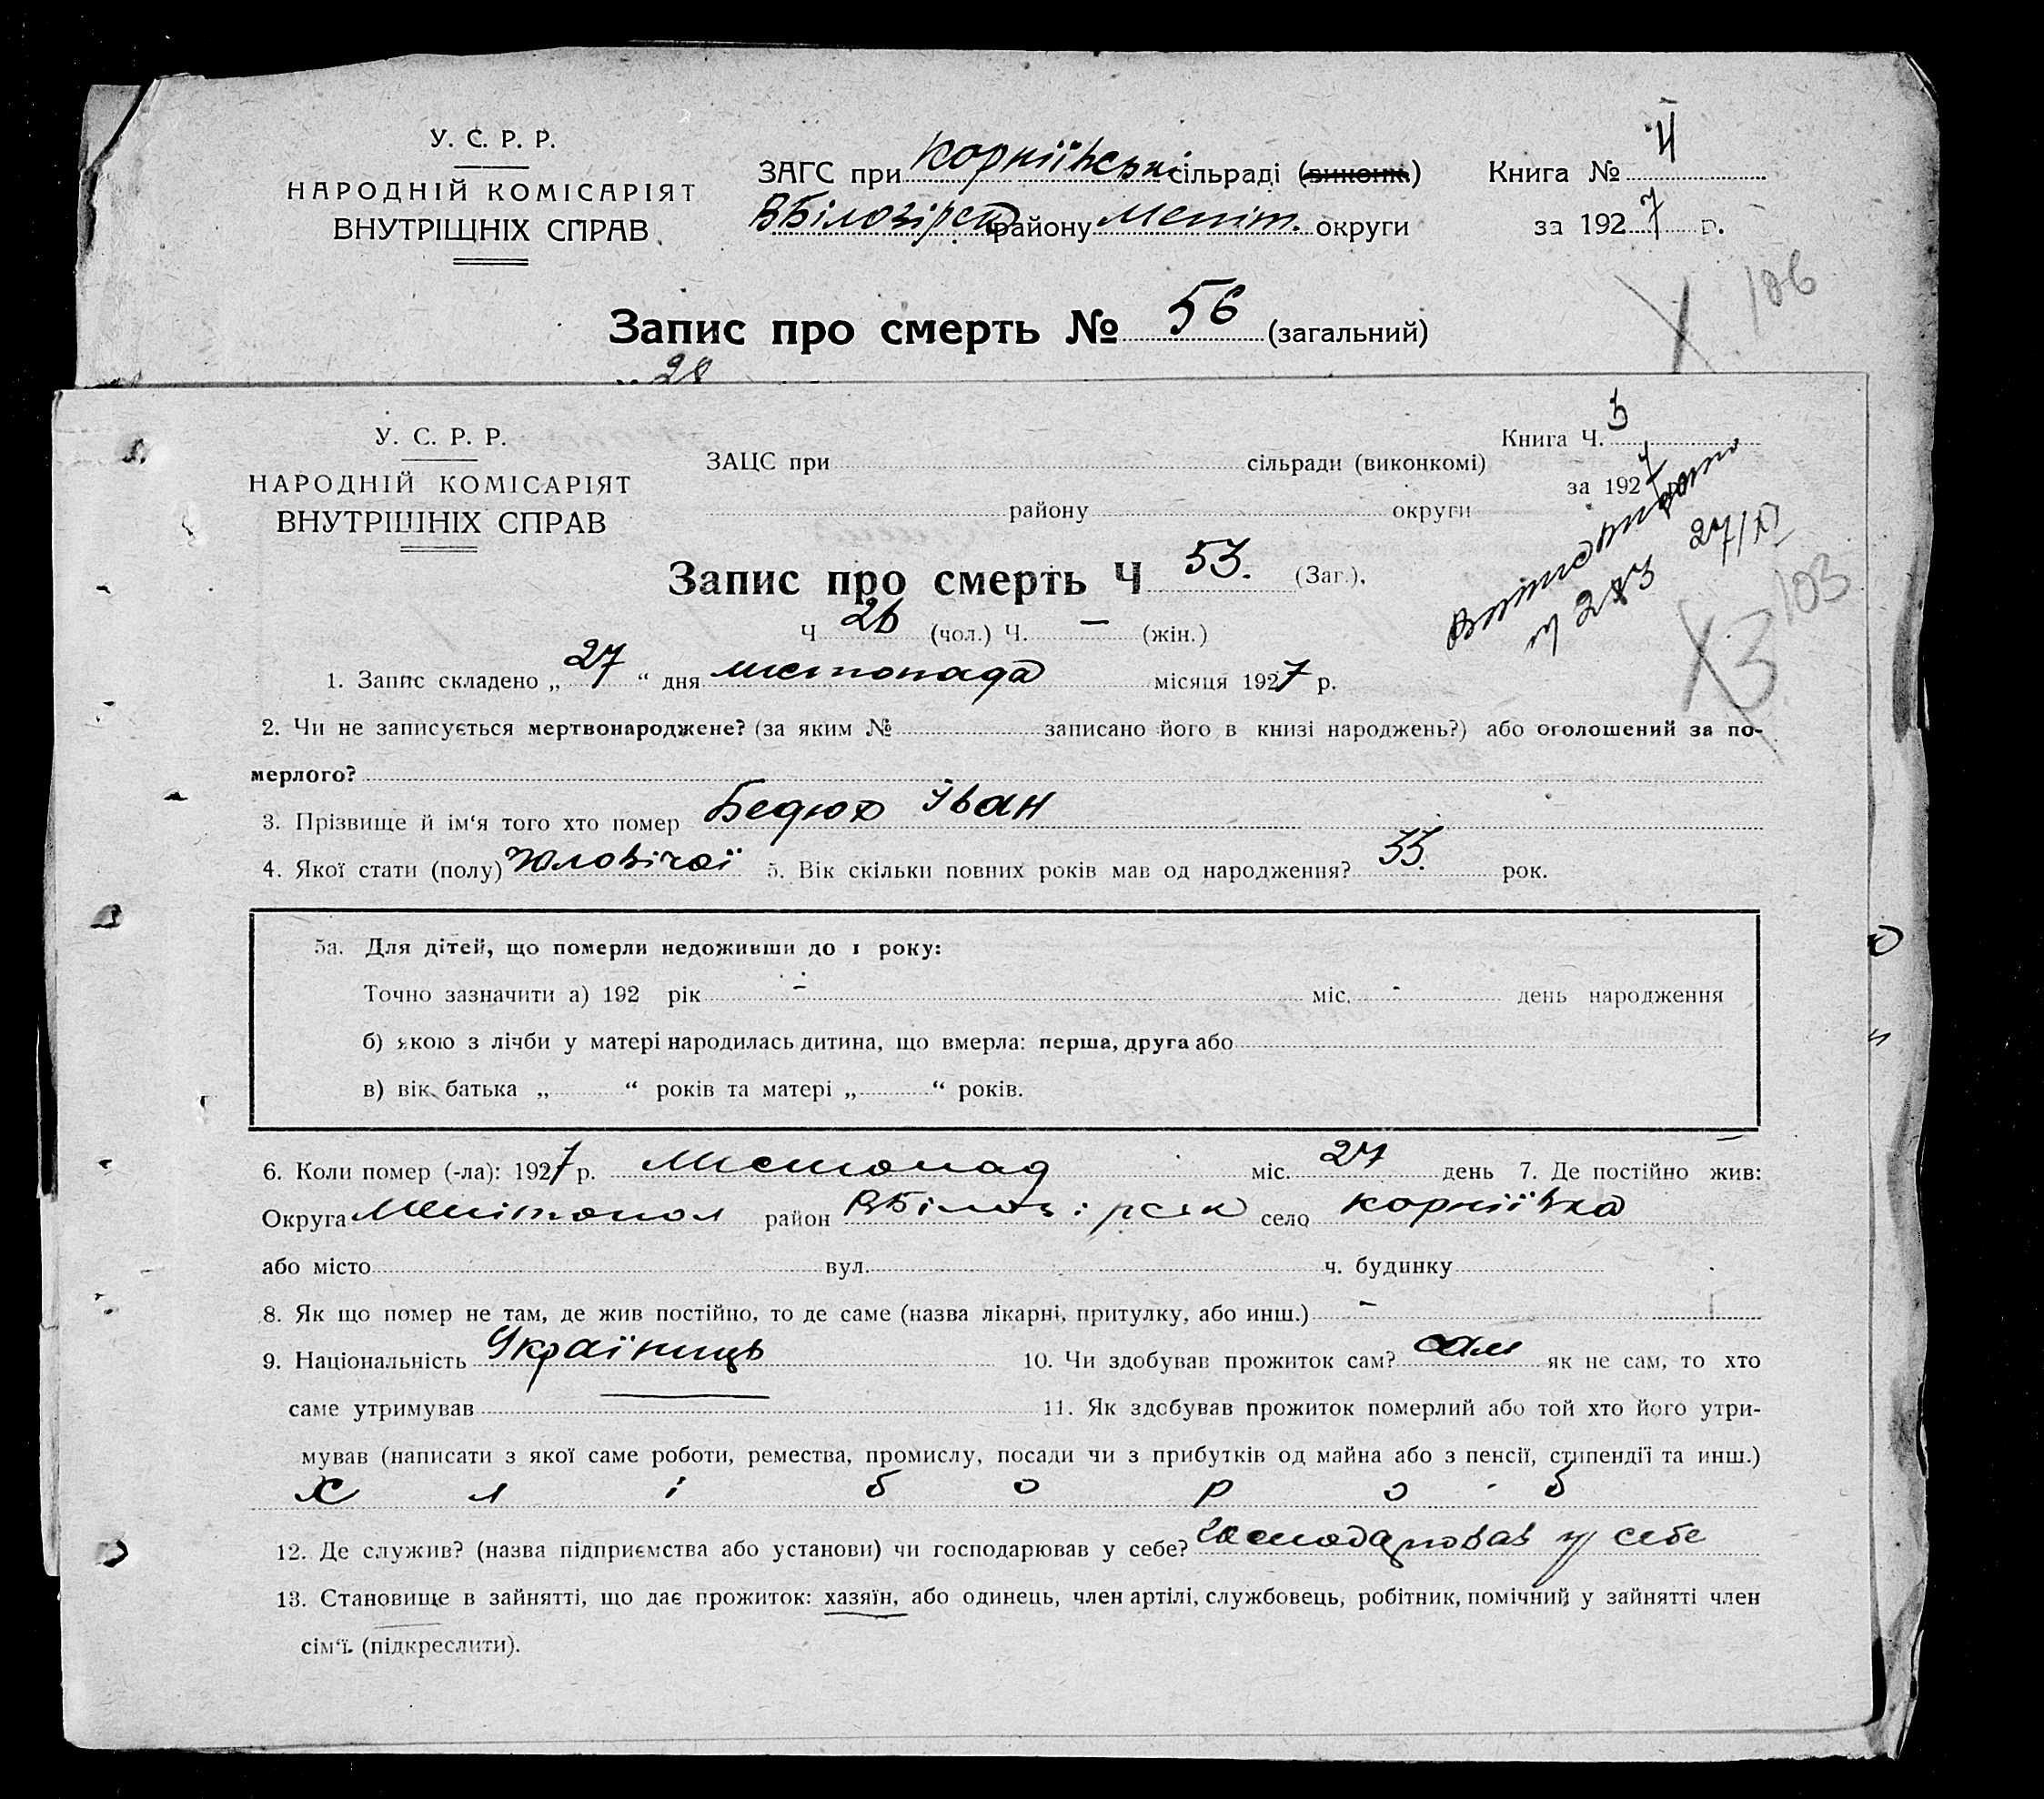 У. С. Р. Р.
НАРОДНІЙ КОМІСАРІЯТ
ВНУТРІШНІХ СПРАВ
ЗАГС при Корніївські сільраді (виконк.)
ВБілозірськ району Меліт. округи
Книга № 4
за 1927 р.
106
Запис про смерть № 56 (загальний)
28
У. С. Р. Р.
НАРОДНІЙ КОМІСАРІЯТ
ВНУТРІШНІХ СПРАВ
ЗАЦС при сільради (виконкомі)
району округи
Книга Ч. 3
за 1927 р.
27/XI
103
Запис про смерть Ч 53. (Заг.).
Ч 26 (чол.) Ч. — (жін.)
1. Запис складено „ 27 “ дня листопада місяця 1927 р.
2. Чи не записується мертвонароджене? (за яким № записано його в книзі народжень?) або оголошений за по-
мерлого?
3. Прізвище й ім‘я того хто помер Бедюх Іван
4. Якої стати (полу) Чловічої 5. Вік скільки повних років мав од народження? 33. рок.
5а. Для дітей, що померли недоживши до 1 року:
Точно зазначити а) 192 рік - міс. - день народження
б) якою з лічби у матері народилась дитина, що вмерла: перша, друга або
в) вік батька „ “ років та матері „ “ років.
6. Коли помер (-ла): 1927 р. Листопад міс. 27 день 7. Де постійно жив:
Округа Мелітопол район ВБілозірськ село Корніївка
або місто вул. ч. будинку
8. Як що помер не там, де жив постійно, то де саме (назва лікарні, притулку, або инш.) -
9. Національність Українць 10. Чи здобував прожиток сам? сам як не сам, то хто
саме утримував 11. Як здобував прожиток померлий або той хто його утри-
мував (написати з якої саме роботи, ремества, промислу, посади чи з прибутків од майна або з пенсії, стипендії та инш.)
Хлібороб
12. Де служив? (назва підприємства або установи) чи господарював у себе? Господарював у себе
13. Становище в зайнятті, що дає прожиток: хазяїн, або одинець, член артілі, службовець, робітник, помічний у зайнятті член
сім‘ї. (підкреслити).